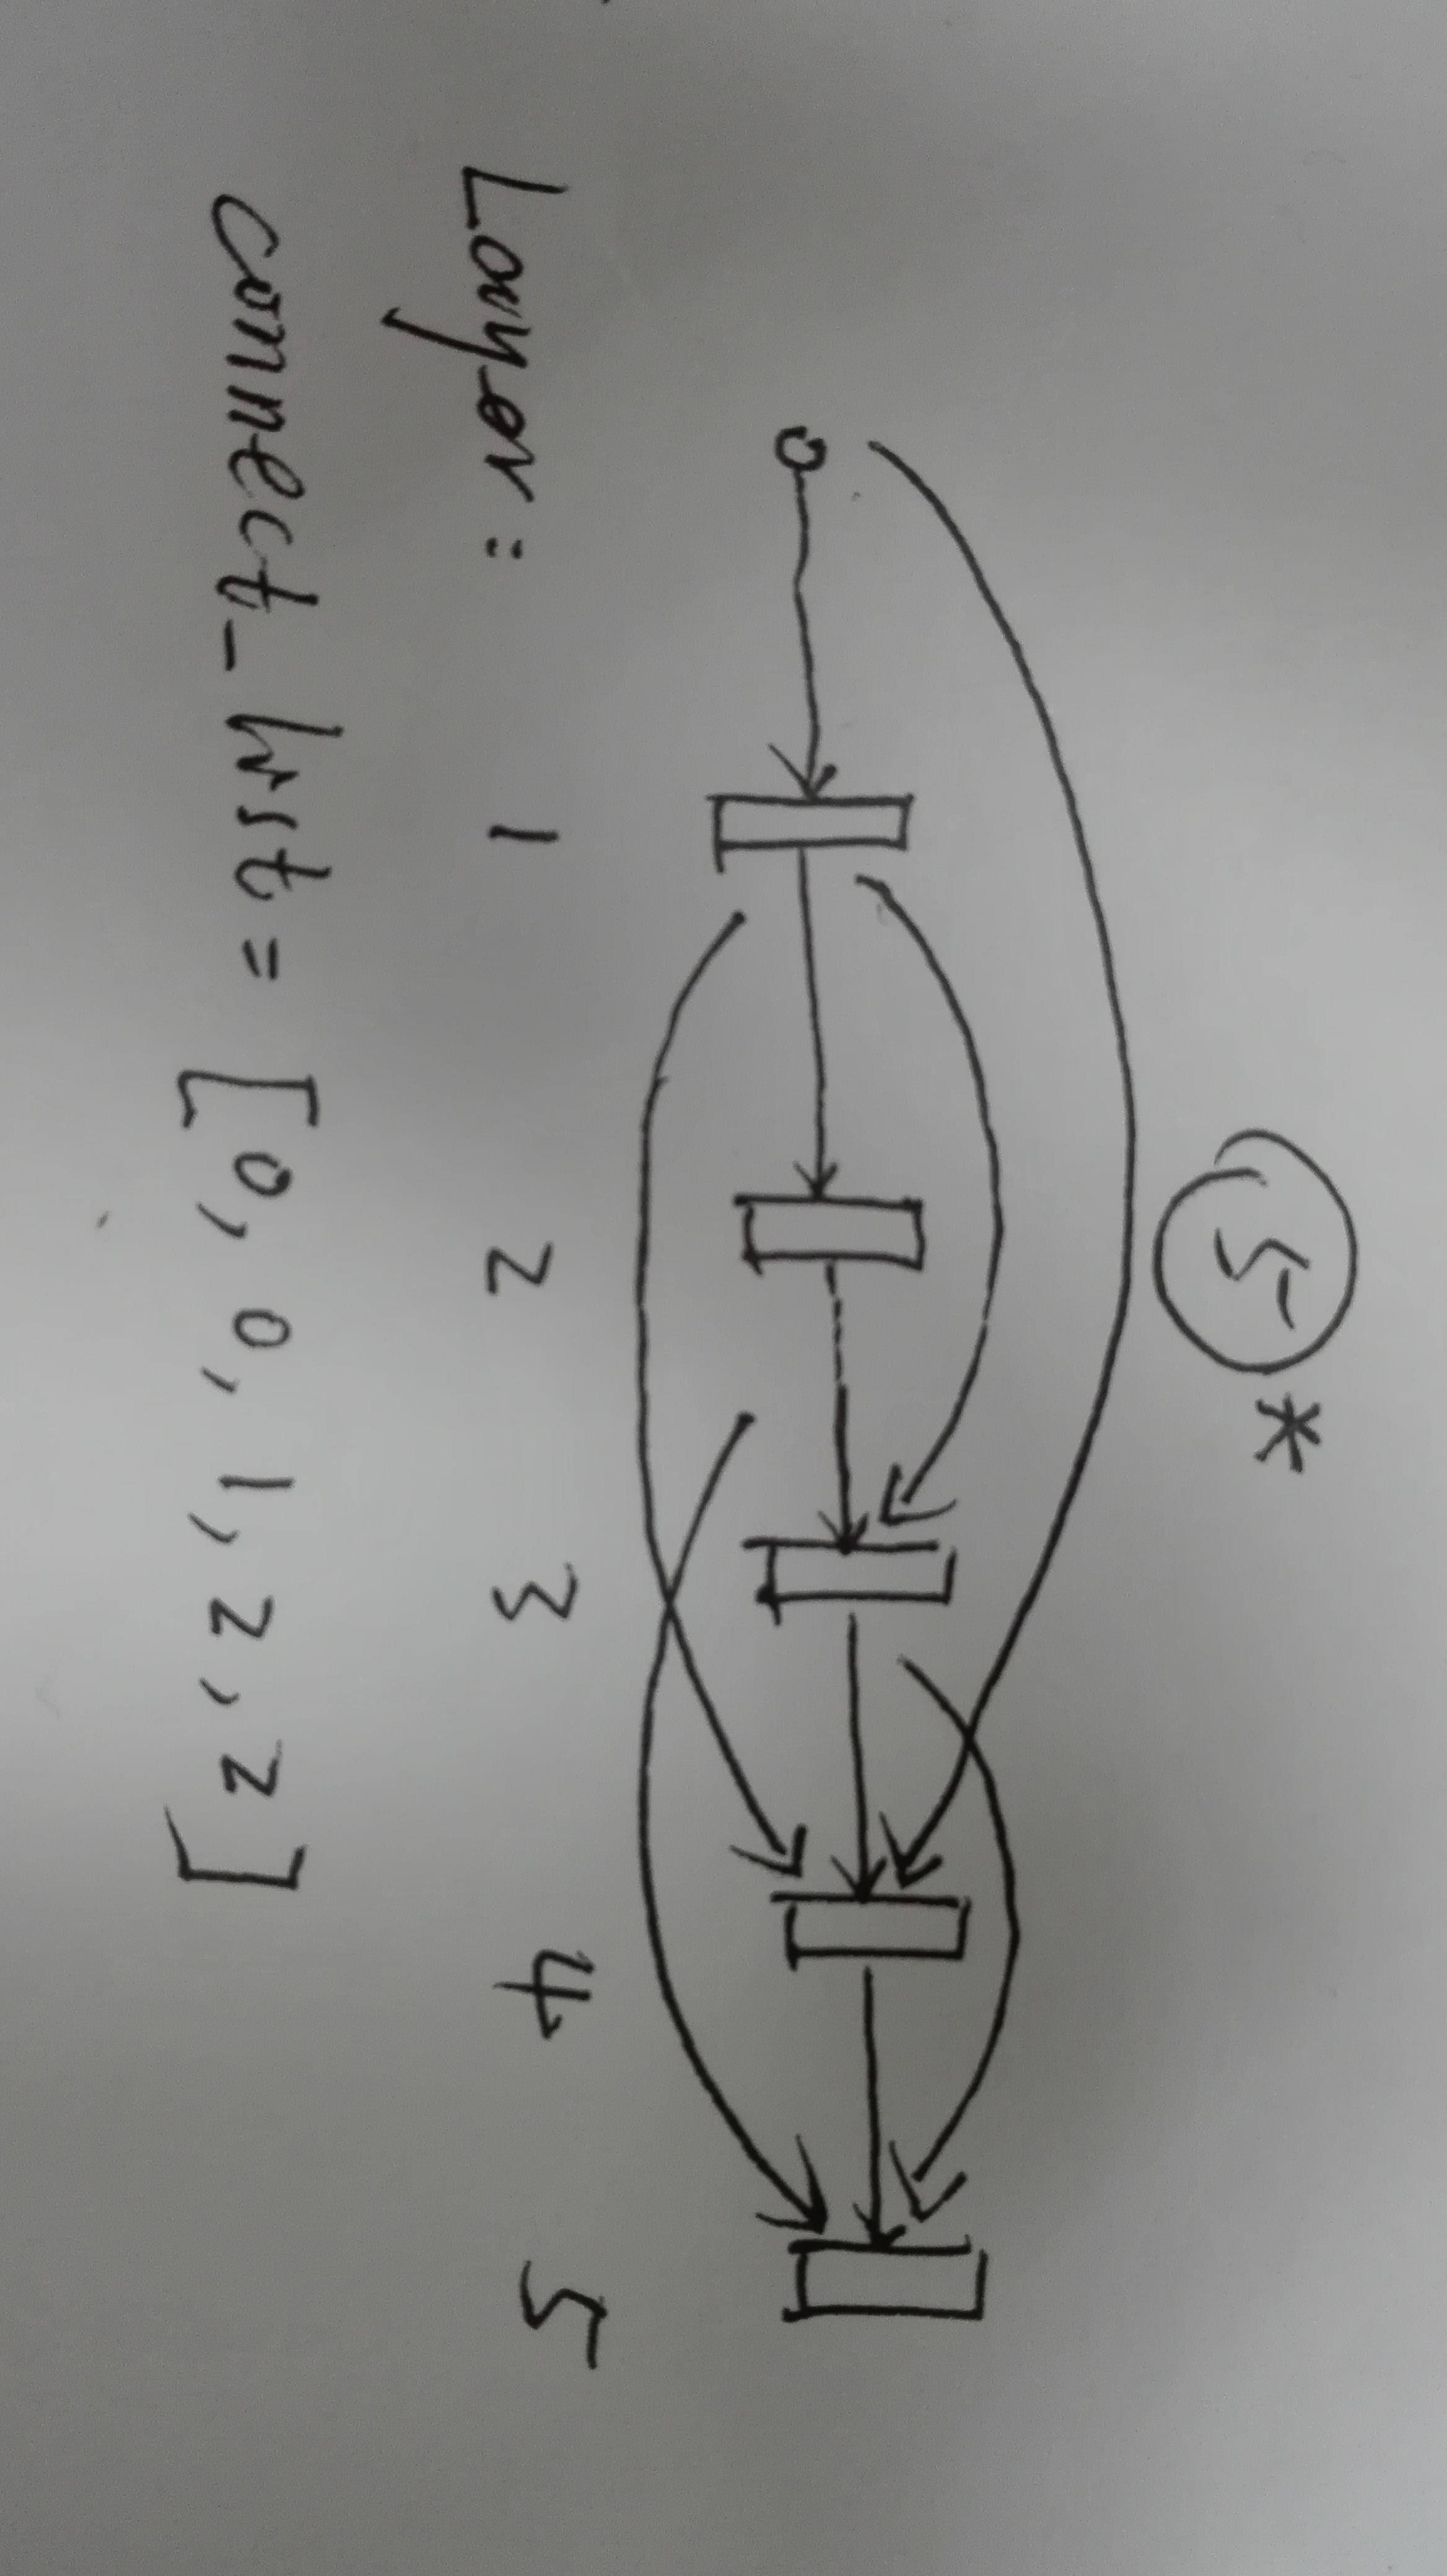 5 *
Layer : 1 2 3 4 5
connect-list = [0, 0, 1, 2, 2]